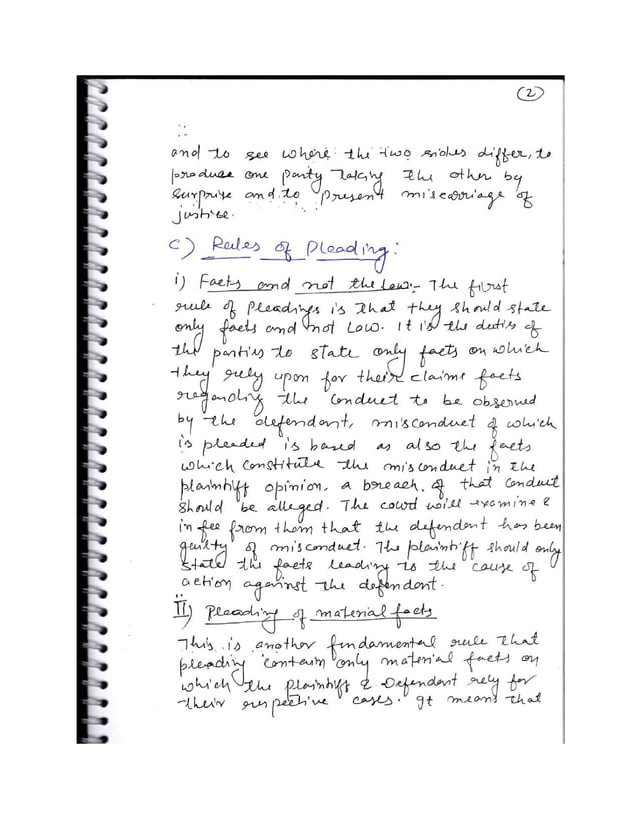 (2)
and to see where the two sides differ, to
produce one party taking the other by
surprise and to present miscarriage of
justice.
C) Rules of Pleading:
i) Facts and not the law:- The first
rule of pleadings is that they should state
only facts and not Law. It is the duties of
the parties to state only facts on which
they rely upon for their claims facts
regarding the conduct to be observed
by the defendant, misconduct of which
is pleaded is based as also the facts
which constitute the misconduct in the
plaintiff opinion, a breach of that conduct
should be alleged. The court will examine &
infee from them that the defendent has been
guilty of misconduct. The plaintiff should only
state the facts leading to the cause of
action against the defendant.
II) Pleading of material facts
This is another fundamental rule that
pleading contain only material facts on
which the plaintiff & Defendant rely for
their respective cases. It means that